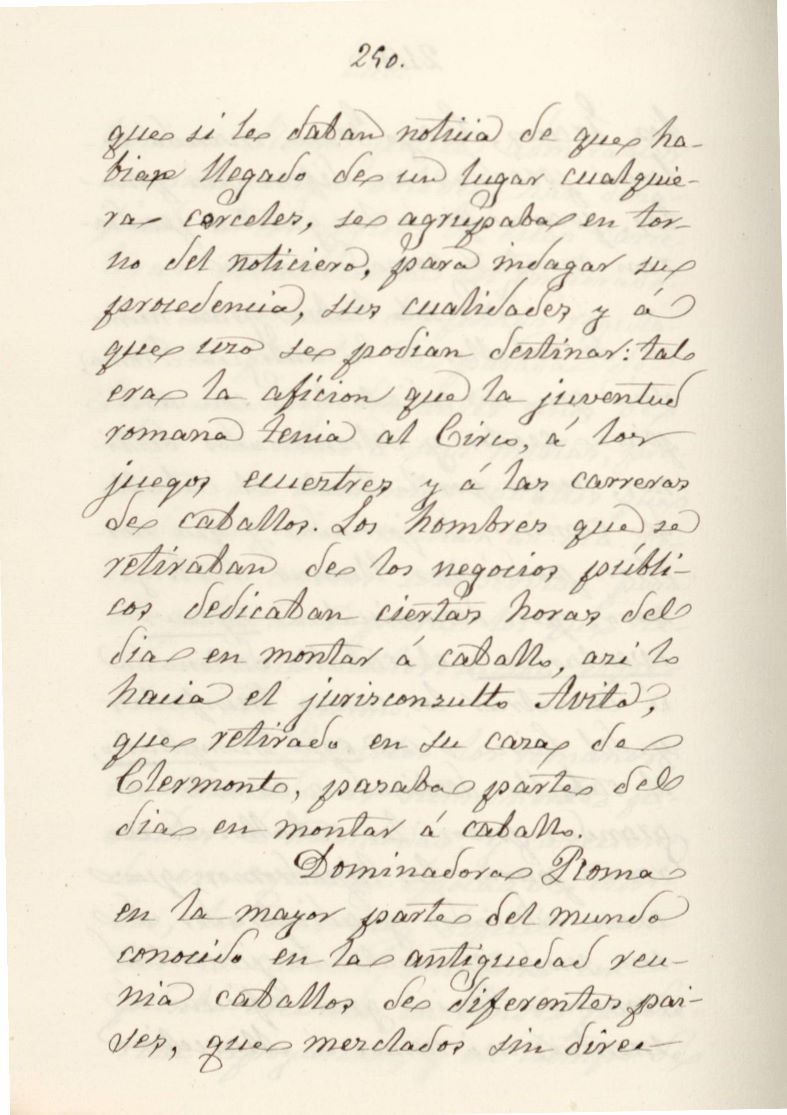 250.
que si le daban noticia de que ha-
bian llegado de un lugar cualquie-
ra corceles, se agrupaba en tor-
no del noticiero, para indagar su
procedencia, sus cualidades y á
que uso se podian destinar: tal
era la aficion que la juventud
romana tenia al Circo, á los
juegos ecuestres y á las carreras
de caballos. Los hombres que se
retiraban de los negocios públi-
cos dedicaban ciertas horas del
dia en montar á caballo, asi lo
hacia el jurisconsulto Avito,
que retirado en su casa de
Clermont, pasaba parte del
dia en montar á caballo.
Dominadora Roma
en la mayor parte del mundo
conocido en la antiguedad reu-
nia caballos de diferentes pai-
ses, que mezclados sin direc-